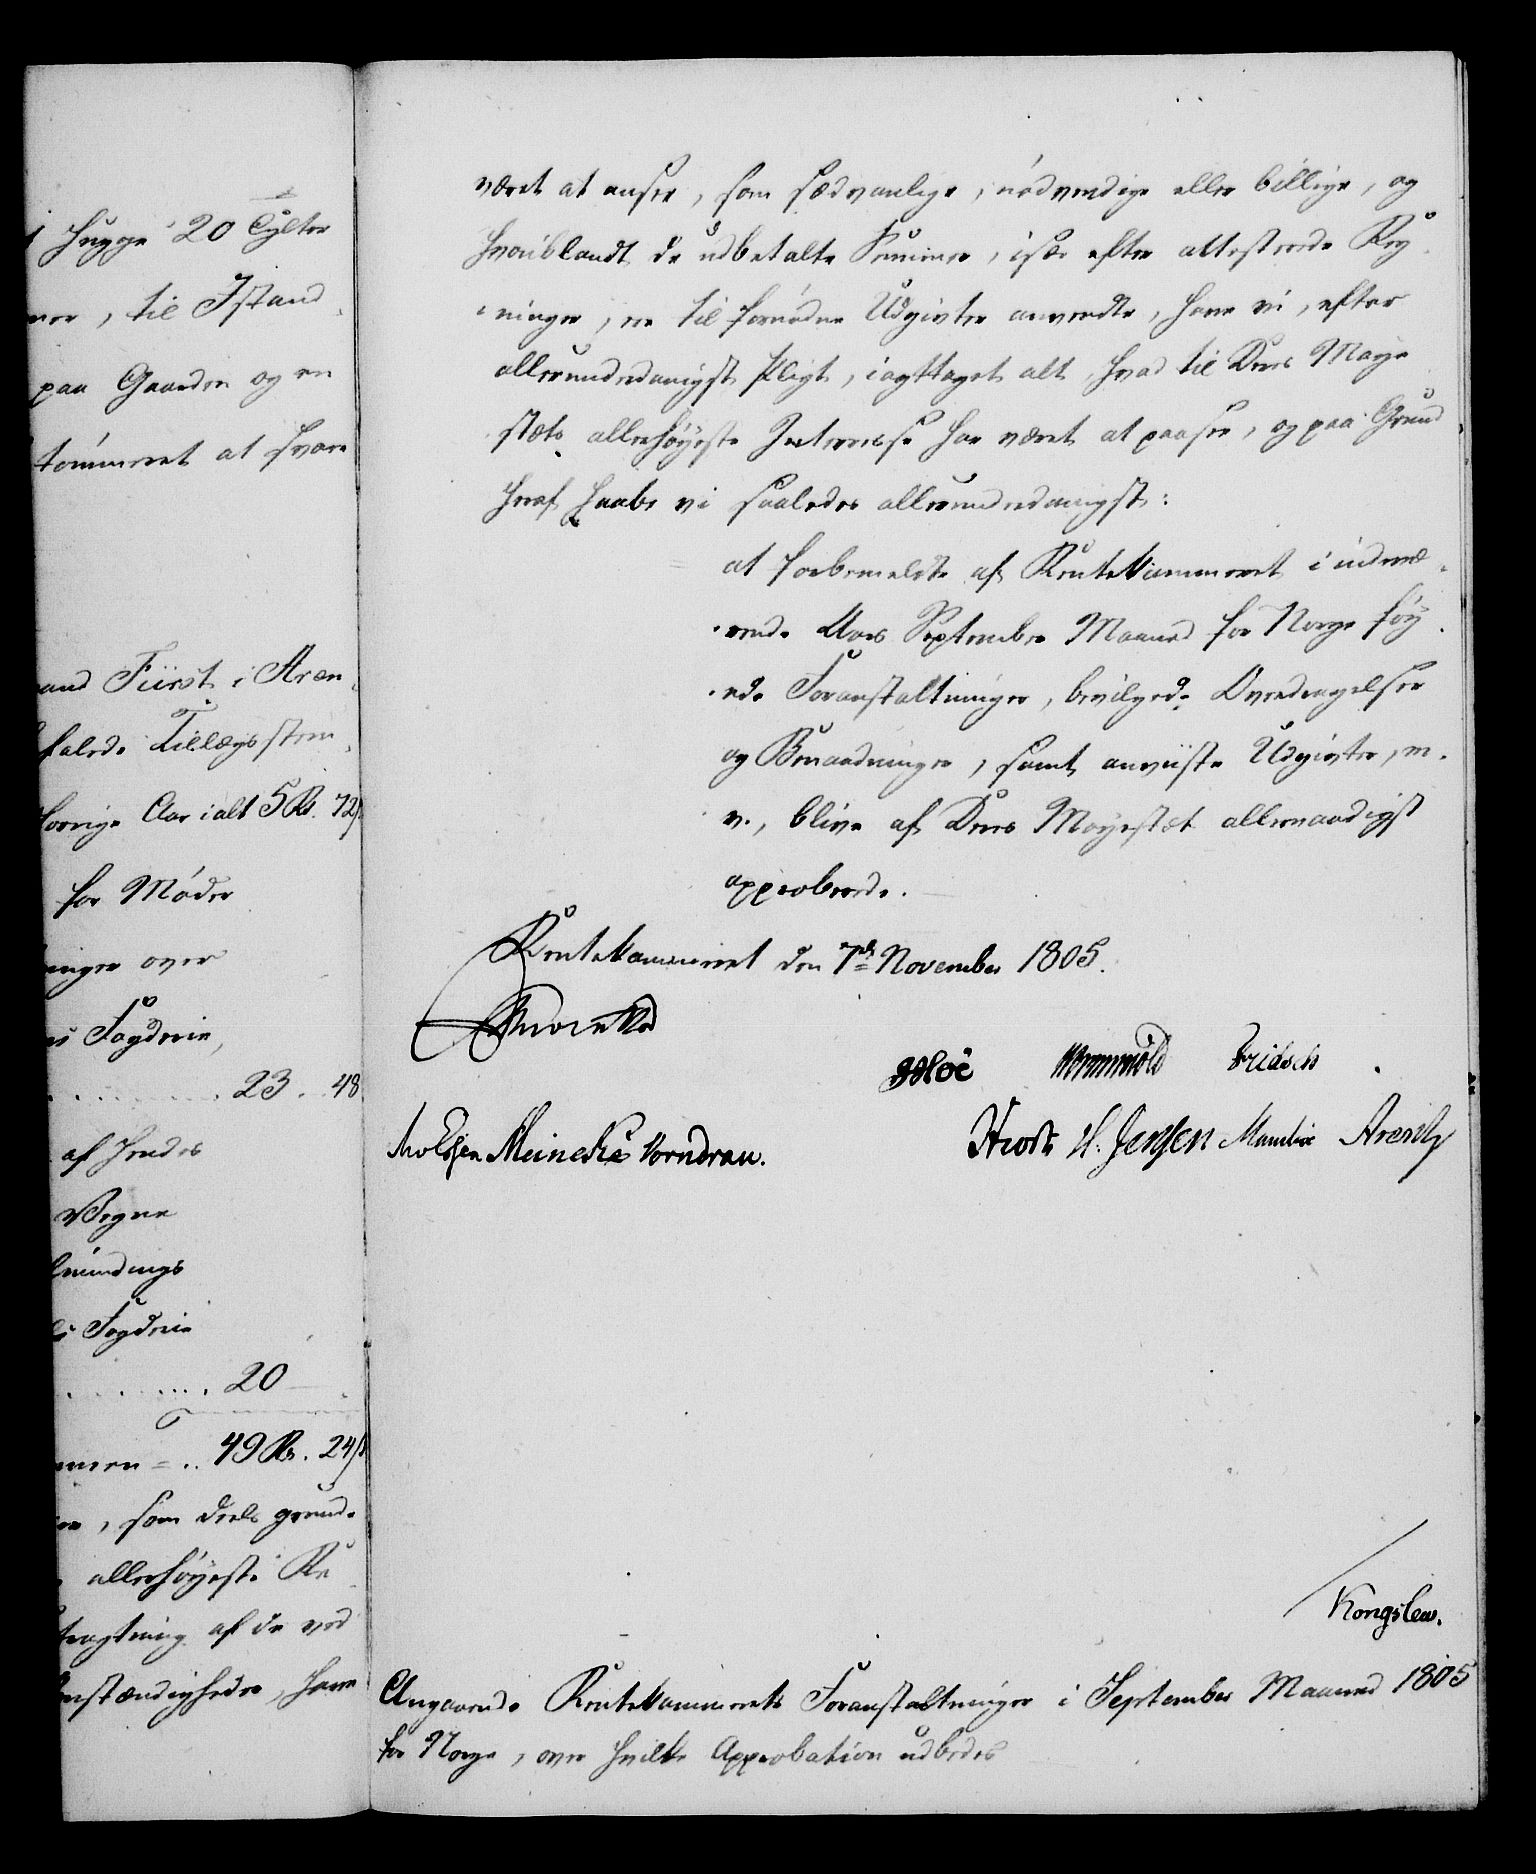 hugge 20 Tylter
, til Istand
paa Gaarden og en
tømmeret at svare
Fürst i Aren-
falede Tillægsstem
forrige Aar ialt 5 Rd. 72 s
for Møder
over
Fogderie,
23 . 48
af hendes
Vegne
Fogderie
20
49 Rd. 24 s
, som deels grund-
allerhøyeste Re
af de ved
, have
været at ansee, som sædvanlige, nødvendige eller billige, og
hvoriblandt de udbetalte Summer, især efter attesterede Reg
ninger, ere til fornødne Udgivter anvendte, have vi, efter
allerunderdanigst Pligt, iagttaget alt, hvad til Deres Maje
stæts allerhøyeste Interesse har været at paasee, og paa Grund
heraf haabe vi saaledes allerunderdanigst:
at forbemeldte af Rentekammeret i indevæ-
rende Aars September Maaned for Norge føy
ede Foranstaltninger, bevilgede Overdragelser
og Benaadninger, samt anviiste Udgivter, m.
v., blive af Deres Majestæt allernaadigst
approberede.
Rentekammeret den 7de November 1805.
Wormskiold Fridsch
Meincke Vorndran.
Hiort H. Jensen Manthe Arentz
Kongslew.
Angaaende Rentekammerets Foranstaltninger i September Maaned 1805
for Norge, over hvilke Approbation udbedes